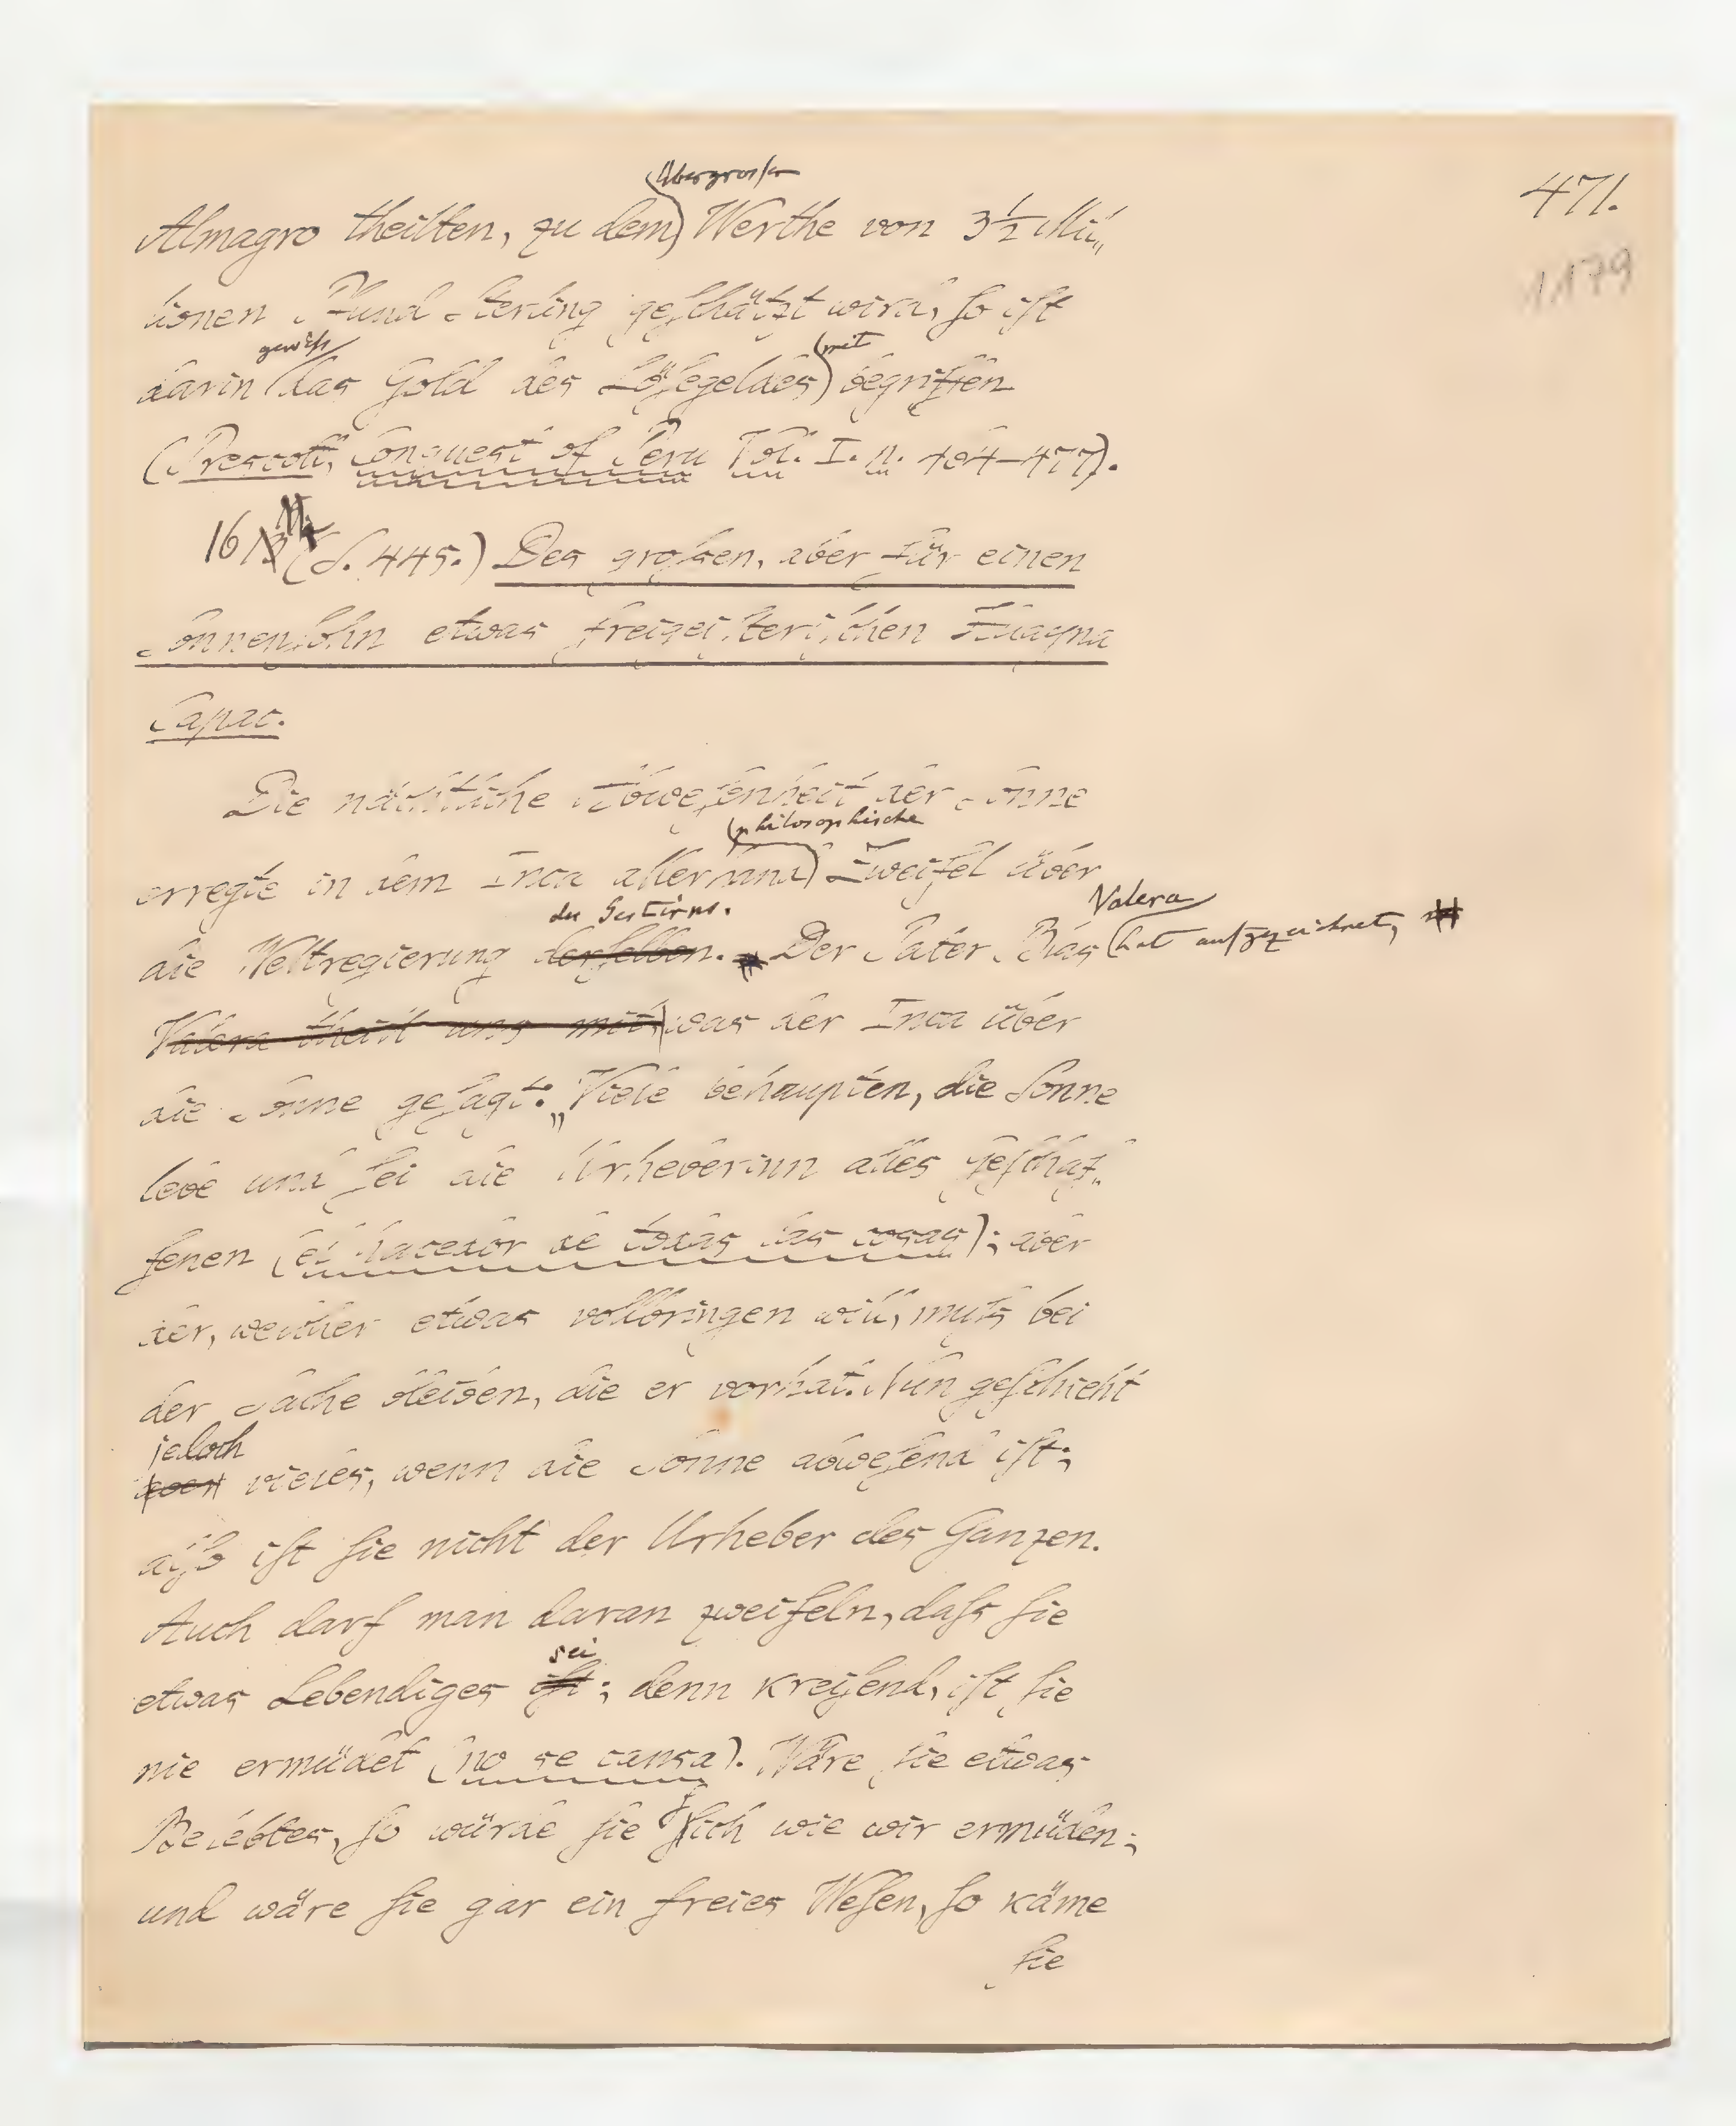 471.
1179
übergroßen
Almagro theilten, zu dem Werthe von 3½ Mil„
lionen Pfund Sterling geschätzt wird, so ist
gewiß mit
darin das Gold des Lösegeldes begriffen
(Prescott, Conquest of Peru Vol. I. p. 464–477).
16 (S. 445.) Des großen, aber für einen
Sonnensohn etwas freigeisterischen Huayna
Capac.
Die nächtliche Abwesenheit der Sonne
philosophische
erregte in dem Inca allerhand Zweifel über
des Gestirns. Valera
die Weltregierung derselben. Der Pater Blas hat aufgezeichnet,
Valera theilt uns mit, was der Inca über
die Sonne gesagt: „Viele behaupten, die Sonne
lebe und sei die Urheberinn alles Geschaf„
fenen (el hacedor de todas las cosas); aber
der, welcher etwas vollbringen will, muß bei
der Sache bleiben, die er vorhat. Nun geschieht
jedoch
aber vieles, wenn die Sonne abwesend ist;
also ist sie nicht der Urheber des Ganzen.
Auch darf man daran zweifeln, daß sie
sei
etwas Lebendiges ist; denn kreisend, ist sie
nie ermüdet (no se cansa). Wäre sie etwas
Belebtes, so würde sie sich wie wir ermüden;
und wäre sie gar ein freies Wesen, so käme
sie